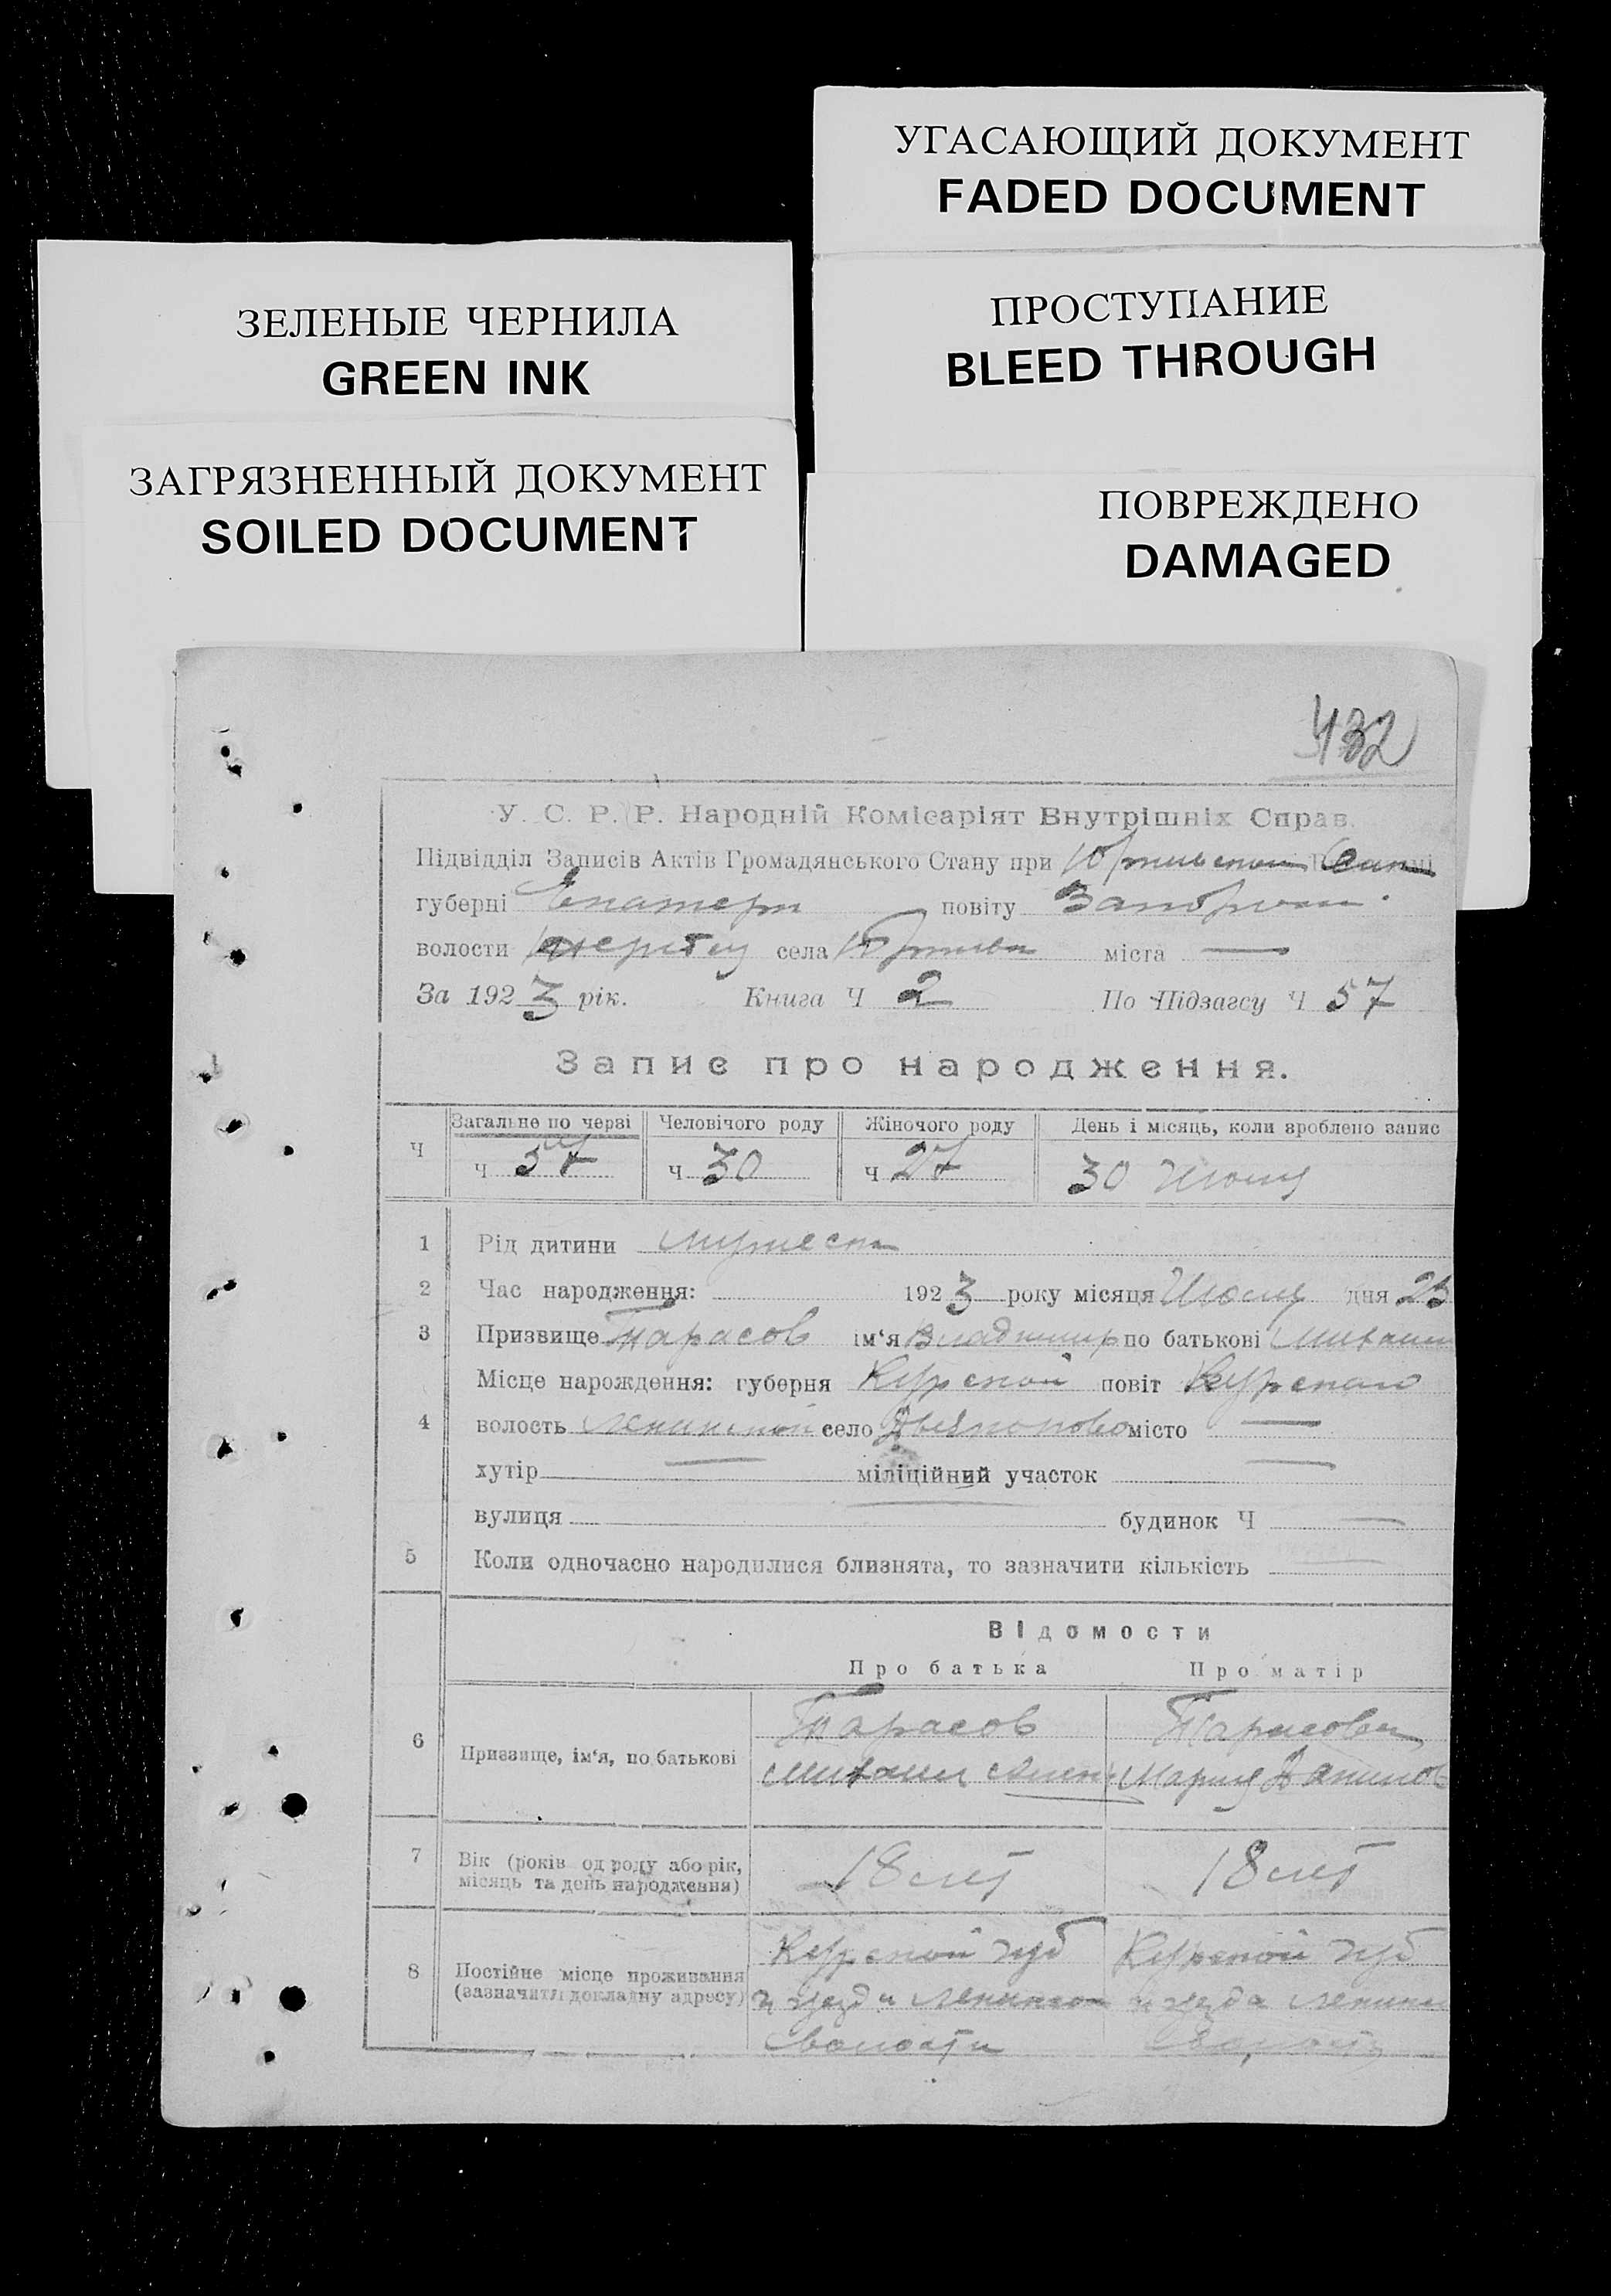 УГАСАЮЩИЙ ДОКУМЕНТ
FADED DOCUMENT
ПРОСТУПАНИЕ
BLEED THROUGH
ЗЕЛЕНЫЕ ЧЕРНИЛА
GREEN INK
ЗАГРЯЗНЕННЫЙ ДОКУМЕНТ
SOILED DOCUMENT
ПОВРЕЖДЕНО
DAMAGED
432
У. С. Р. Р. Народній Комісаріят Внутрішніх Справ.
Підвідділ Записів Актів Громадянського Стану при
губерні Екатери повіту Запорож.
волости села міста —
За 1923 рік. Книга Ч 2 По Підзагсу Ч 57
Запис про народження.
Ч Загальне по черзі Человічого роду Жіночого роду День і місяць, коли зроблено запис
Ч 57 Ч 30 Ч 27 30 Июля
1 Рід дитини мужеска
2 Час народження: 1923 року місяця Июля дня 23
3 Призвище Тарасов ім‘я Владимир по батькові Михаил
Місце нарождення: губерня Курской повіт Курскаго
4 волость Ленинской село місто —
хутір — міліційний участок —
вулиця будинок Ч —
5 Коли одночасно народилися близнята, то зазначити кількість
Відомости
Про батька Про матір
6 Призвище, ім‘я, по батькові
Тарасов Тарасова
Михаил Мария
7 Вік (років од роду або рік, місяць та день народження) 18 лет 18 лет
8 Постійне місце проживання (зазначити докладну адресу)
Курской губ Курской губ
и уезда Ленинской и уезда Ленин
волости